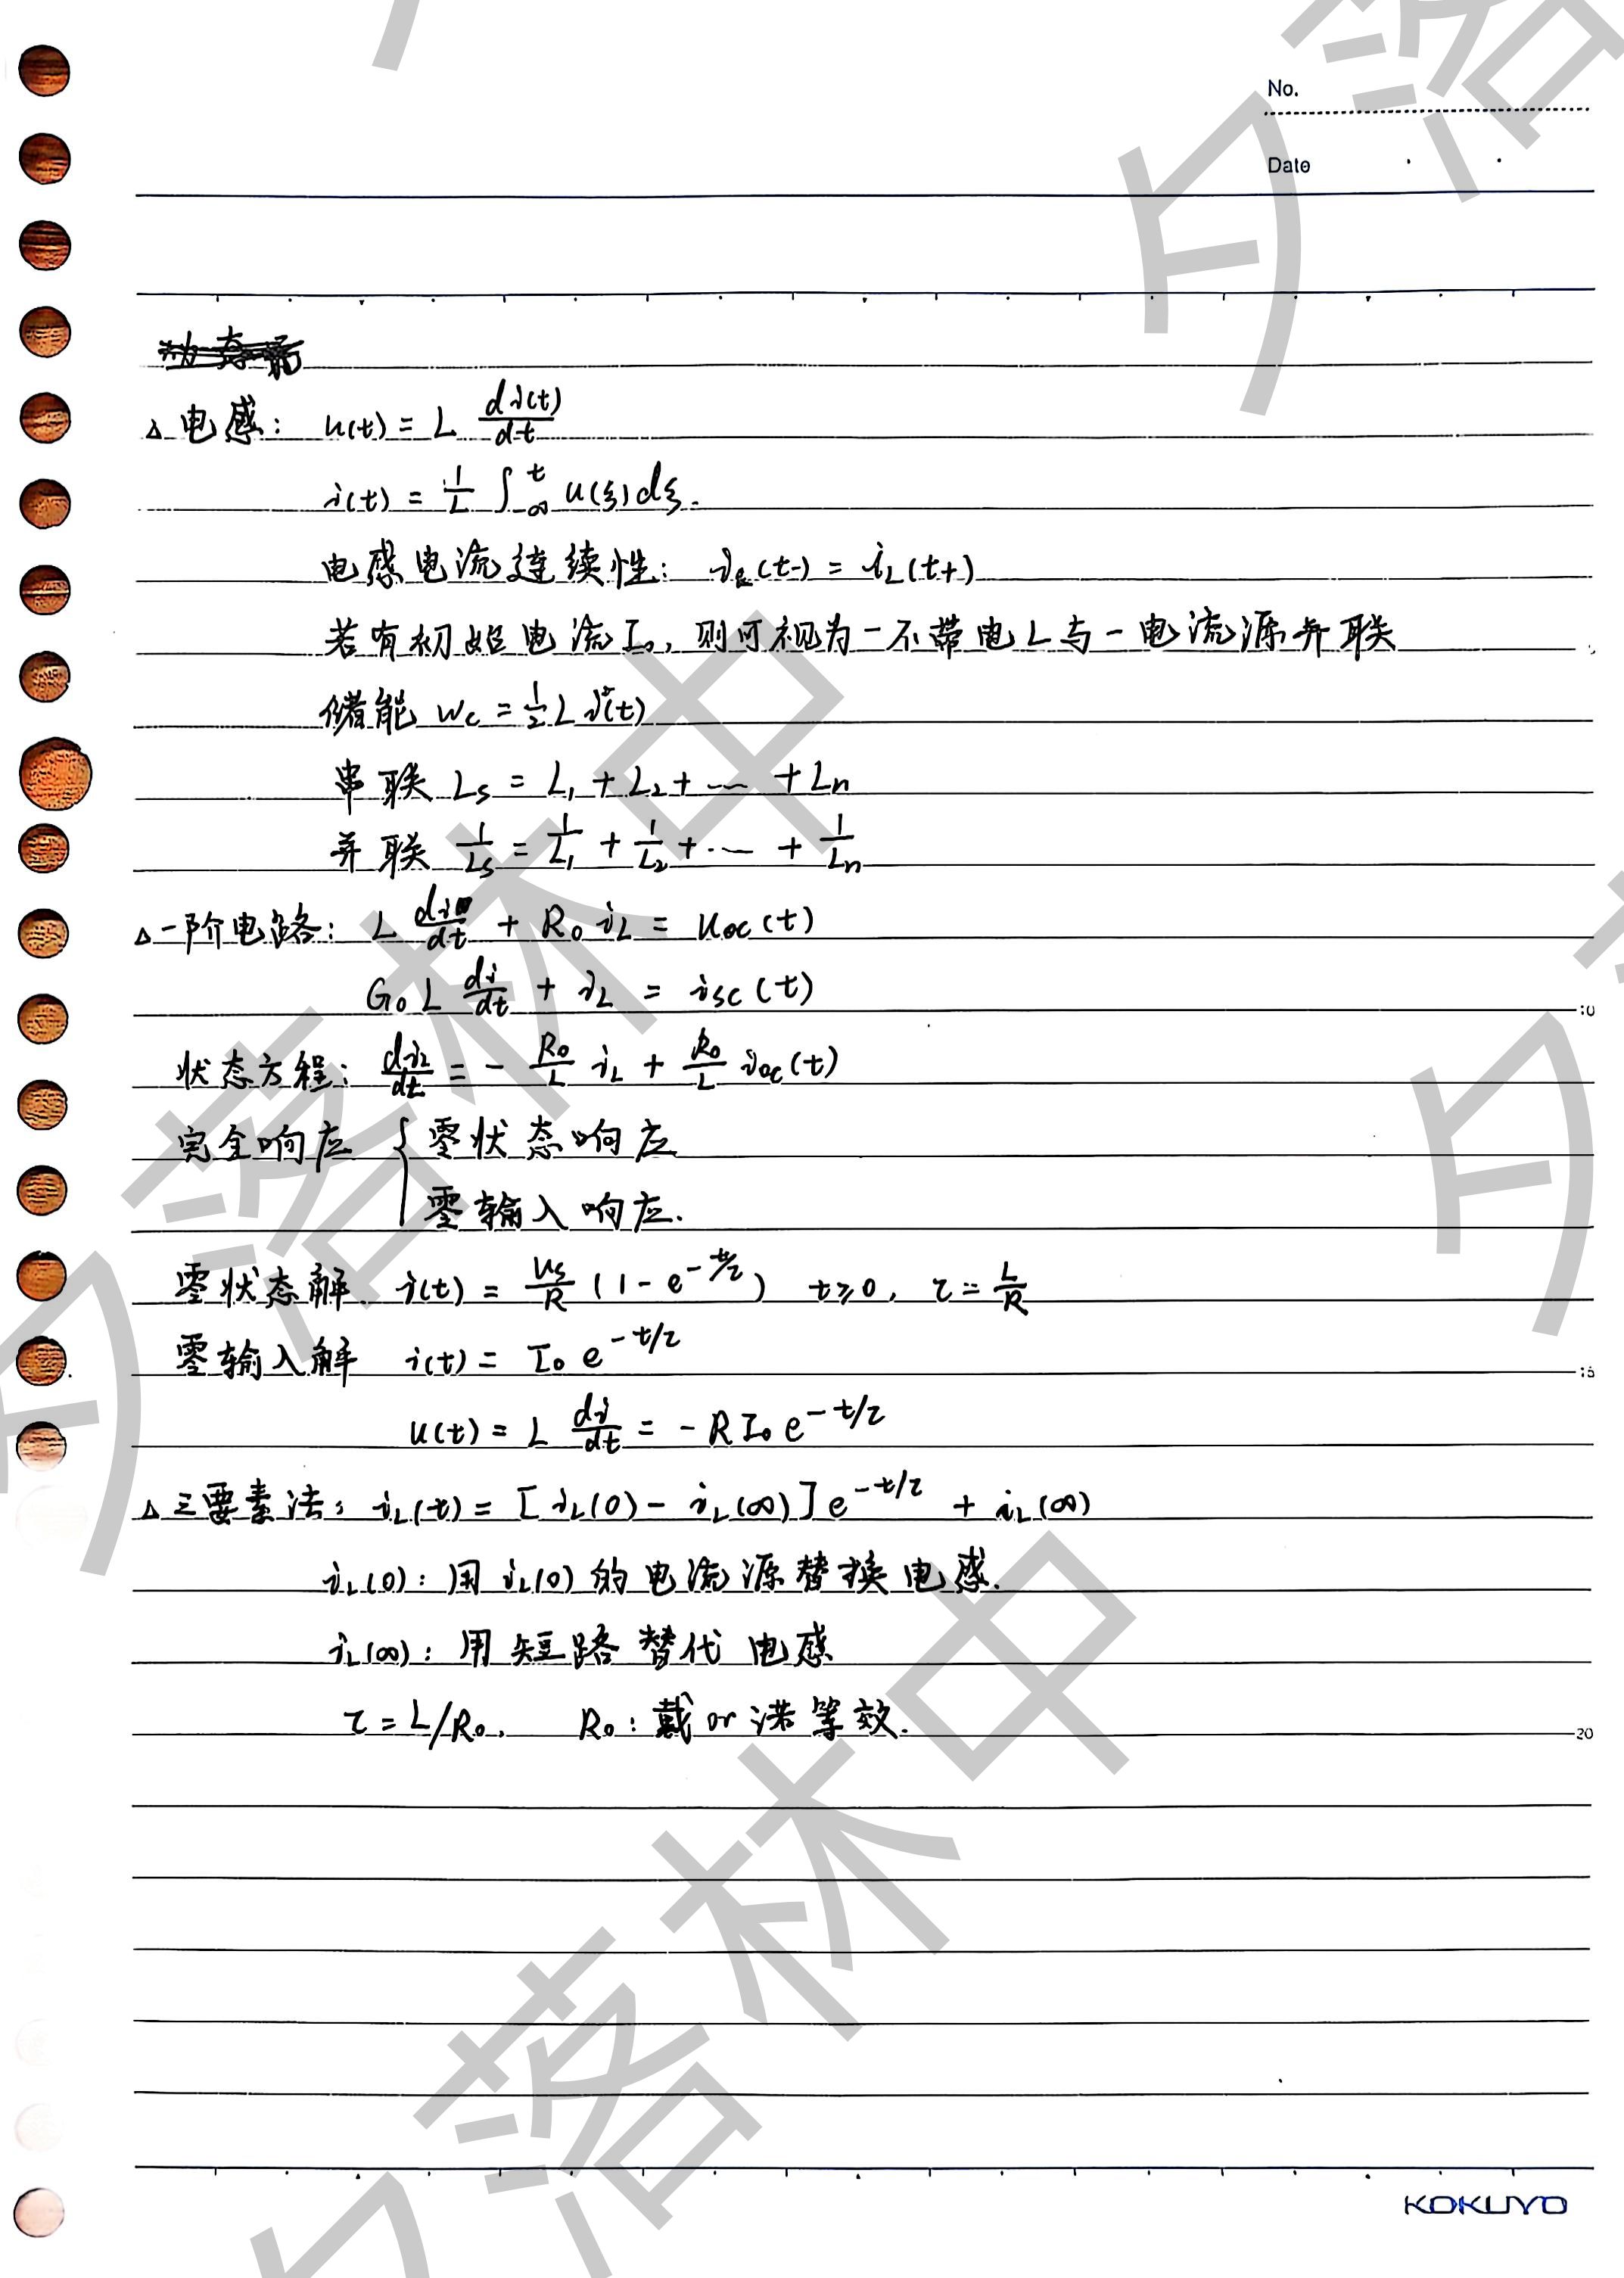 No.
Date
△电感: u(t) = L di(t)/dt
i(t) = 1/L ∫_{-∞}^{t} u(ξ)dξ.
电感电流连续性: i_L(t-) = i_L(t+)
若有初始电流I₀, 则可视为一不带电L与一电流源并联
储能 W_c = 1/2 L i²(t)
串联 L_s = L₁ + L₂ + … + L_n
并联 1/L_s = 1/L₁ + 1/L₂ + … + 1/L_n
△一阶电路: L di/dt + R₀ i_L = u_oc(t)
G₀L di/dt + i_L = i_sc(t)
状态方程: di_L/dt = - R₀/L i_L + R₀/L i_oc(t)
完全响应 { 零状态响应
零输入响应.
零状态解 i(t) = u_s/R (1 - e^{-t/τ}) t≥0, τ = L/R
零输入解 i(t) = I₀ e^{-t/τ}
u(t) = L di/dt = -R I₀ e^{-t/τ}
△三要素法: i_L(t) = [i_L(0) - i_L(∞)] e^{-t/τ} + i_L(∞)
i_L(0): 用 i_L(0) 的电流源替换电感.
i_L(∞): 用短路替代电感
τ = L/R₀. R₀: 戴 or 诺等效.
10
15
20
KOKUYO
夕落林中
夕落林中
夕落
夕